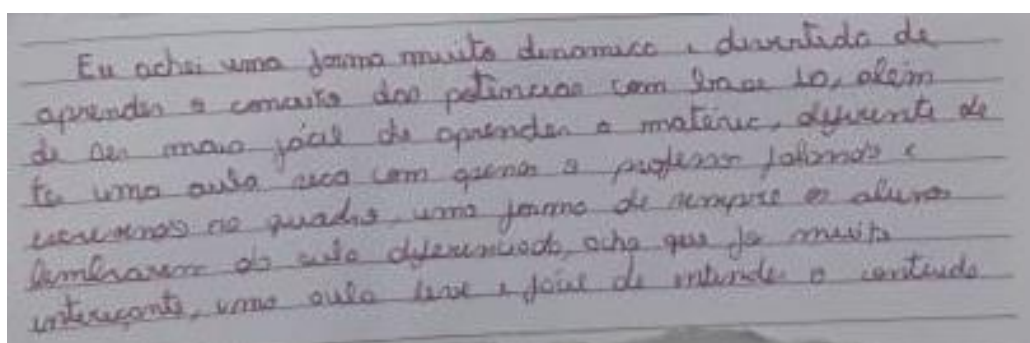 Eu achei uma forma muito dinamica e divertida de
aprender o conceito das potências com base 10, além
de ser mais fácil de aprender a matéria, diferente de
te uma aula seca com apenas o professor falando e
escrevendo no quadro, uma forma de sempre os alunos
lembrarem da aula diferenciada, acho que foi muito
intereçante, uma aula leve e fácil de entender o conteúdo